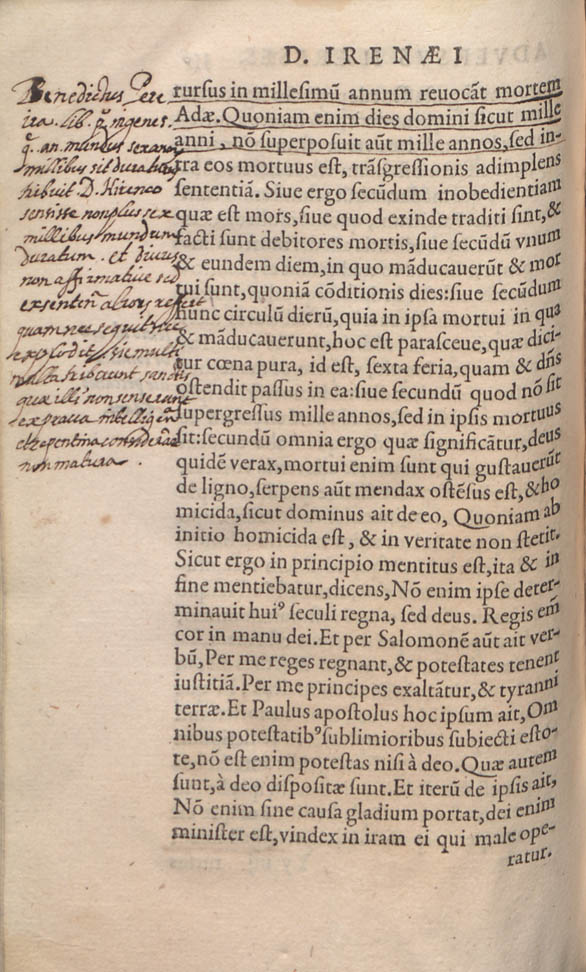 D. IRENÆI
rursus in millesimũ annum reuocãt mortem
Adæ. Quoniam enim dies domini sicut mille
anni, nõ superposuit aũt mille annos, sed in-
tra eos mortuus est, trãsgressionis adimplens
sententiã. Siue ergo secũdum inobedientiam
quæ est mors, siue quod exinde traditi sint, &
facti sunt debitores mortis, siue secũdũ vnum
& eundem diem, in quo mãducauerũt & mor
tui sunt, quoniã cõditionis dies: siue secũdum
hunc circulũ dierũ, quia in ipsa mortui in qua
& mãducauerunt, hoc est parasceue, quæ dici-
tur cœna pura, id est, sexta feria, quam & dñs
ostendit passus in ea: siue secundũ quod nõ sit
supergressus mille annos, sed in ipsis mortuus
sit: secundũ omnia ergo quæ significãtur, deus
quidẽ verax, mortui enim sunt qui gustauerũt
de ligno, serpens aũt mendax ostẽsus est, & ho
micida, sicut dominus ait de eo, Quoniam ab
initio homicida est, & in veritate non stetit.
Sicut ergo in principio mentitus est, ita & in
fine mentiebatur, dicens, Nõ enim ipse deter-
minauit huiꝰ seculi regna, sed deus. Regis em̃
cor in manu dei. Et per Salomonẽ aũt ait ver-
bũ, Per me reges regnant, & potestates tenent
iustitiã. Per me principes exaltãtur, & tyranni
terræ. Et Paulus apostolus hoc ipsum ait, Om
nibus potestatibꝰ sublimioribus subiecti esto-
te, nõ est enim potestas nisi à deo. Quæ autem
sunt, à deo dispositæ sunt. Et iterũ de ipsis ait,
Nõ enim sine causa gladium portat, dei enim
minister est, vindex in iram ei qui male ope-
ratur.
Benedictus Pere
ira. lib. in genes.
an. mundus sex
millibus sit duraturus
D. Hireneo
sensisse non plus sex
millibus mundum
duratum. et
non affirmative sed
ex sententia
quam nec sequitur
explodit. sic multi
multa sanctis
quæ illi non senserunt
ex prava
et repentina
non matura.